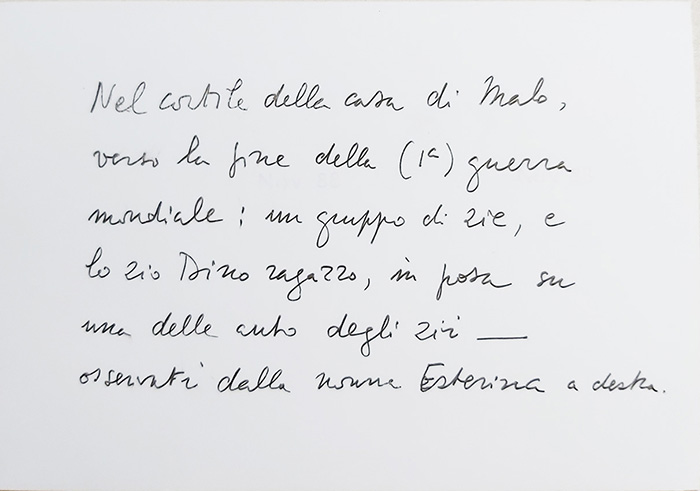 Nel cortile della casa di Malo,
verso la fine della (1ª) guerra
mondiale: un gruppo di zie, e
lo zio Dino ragazzo, in posa su
una delle auto degli zii —
osservati dalla nonna Esterina a destra.